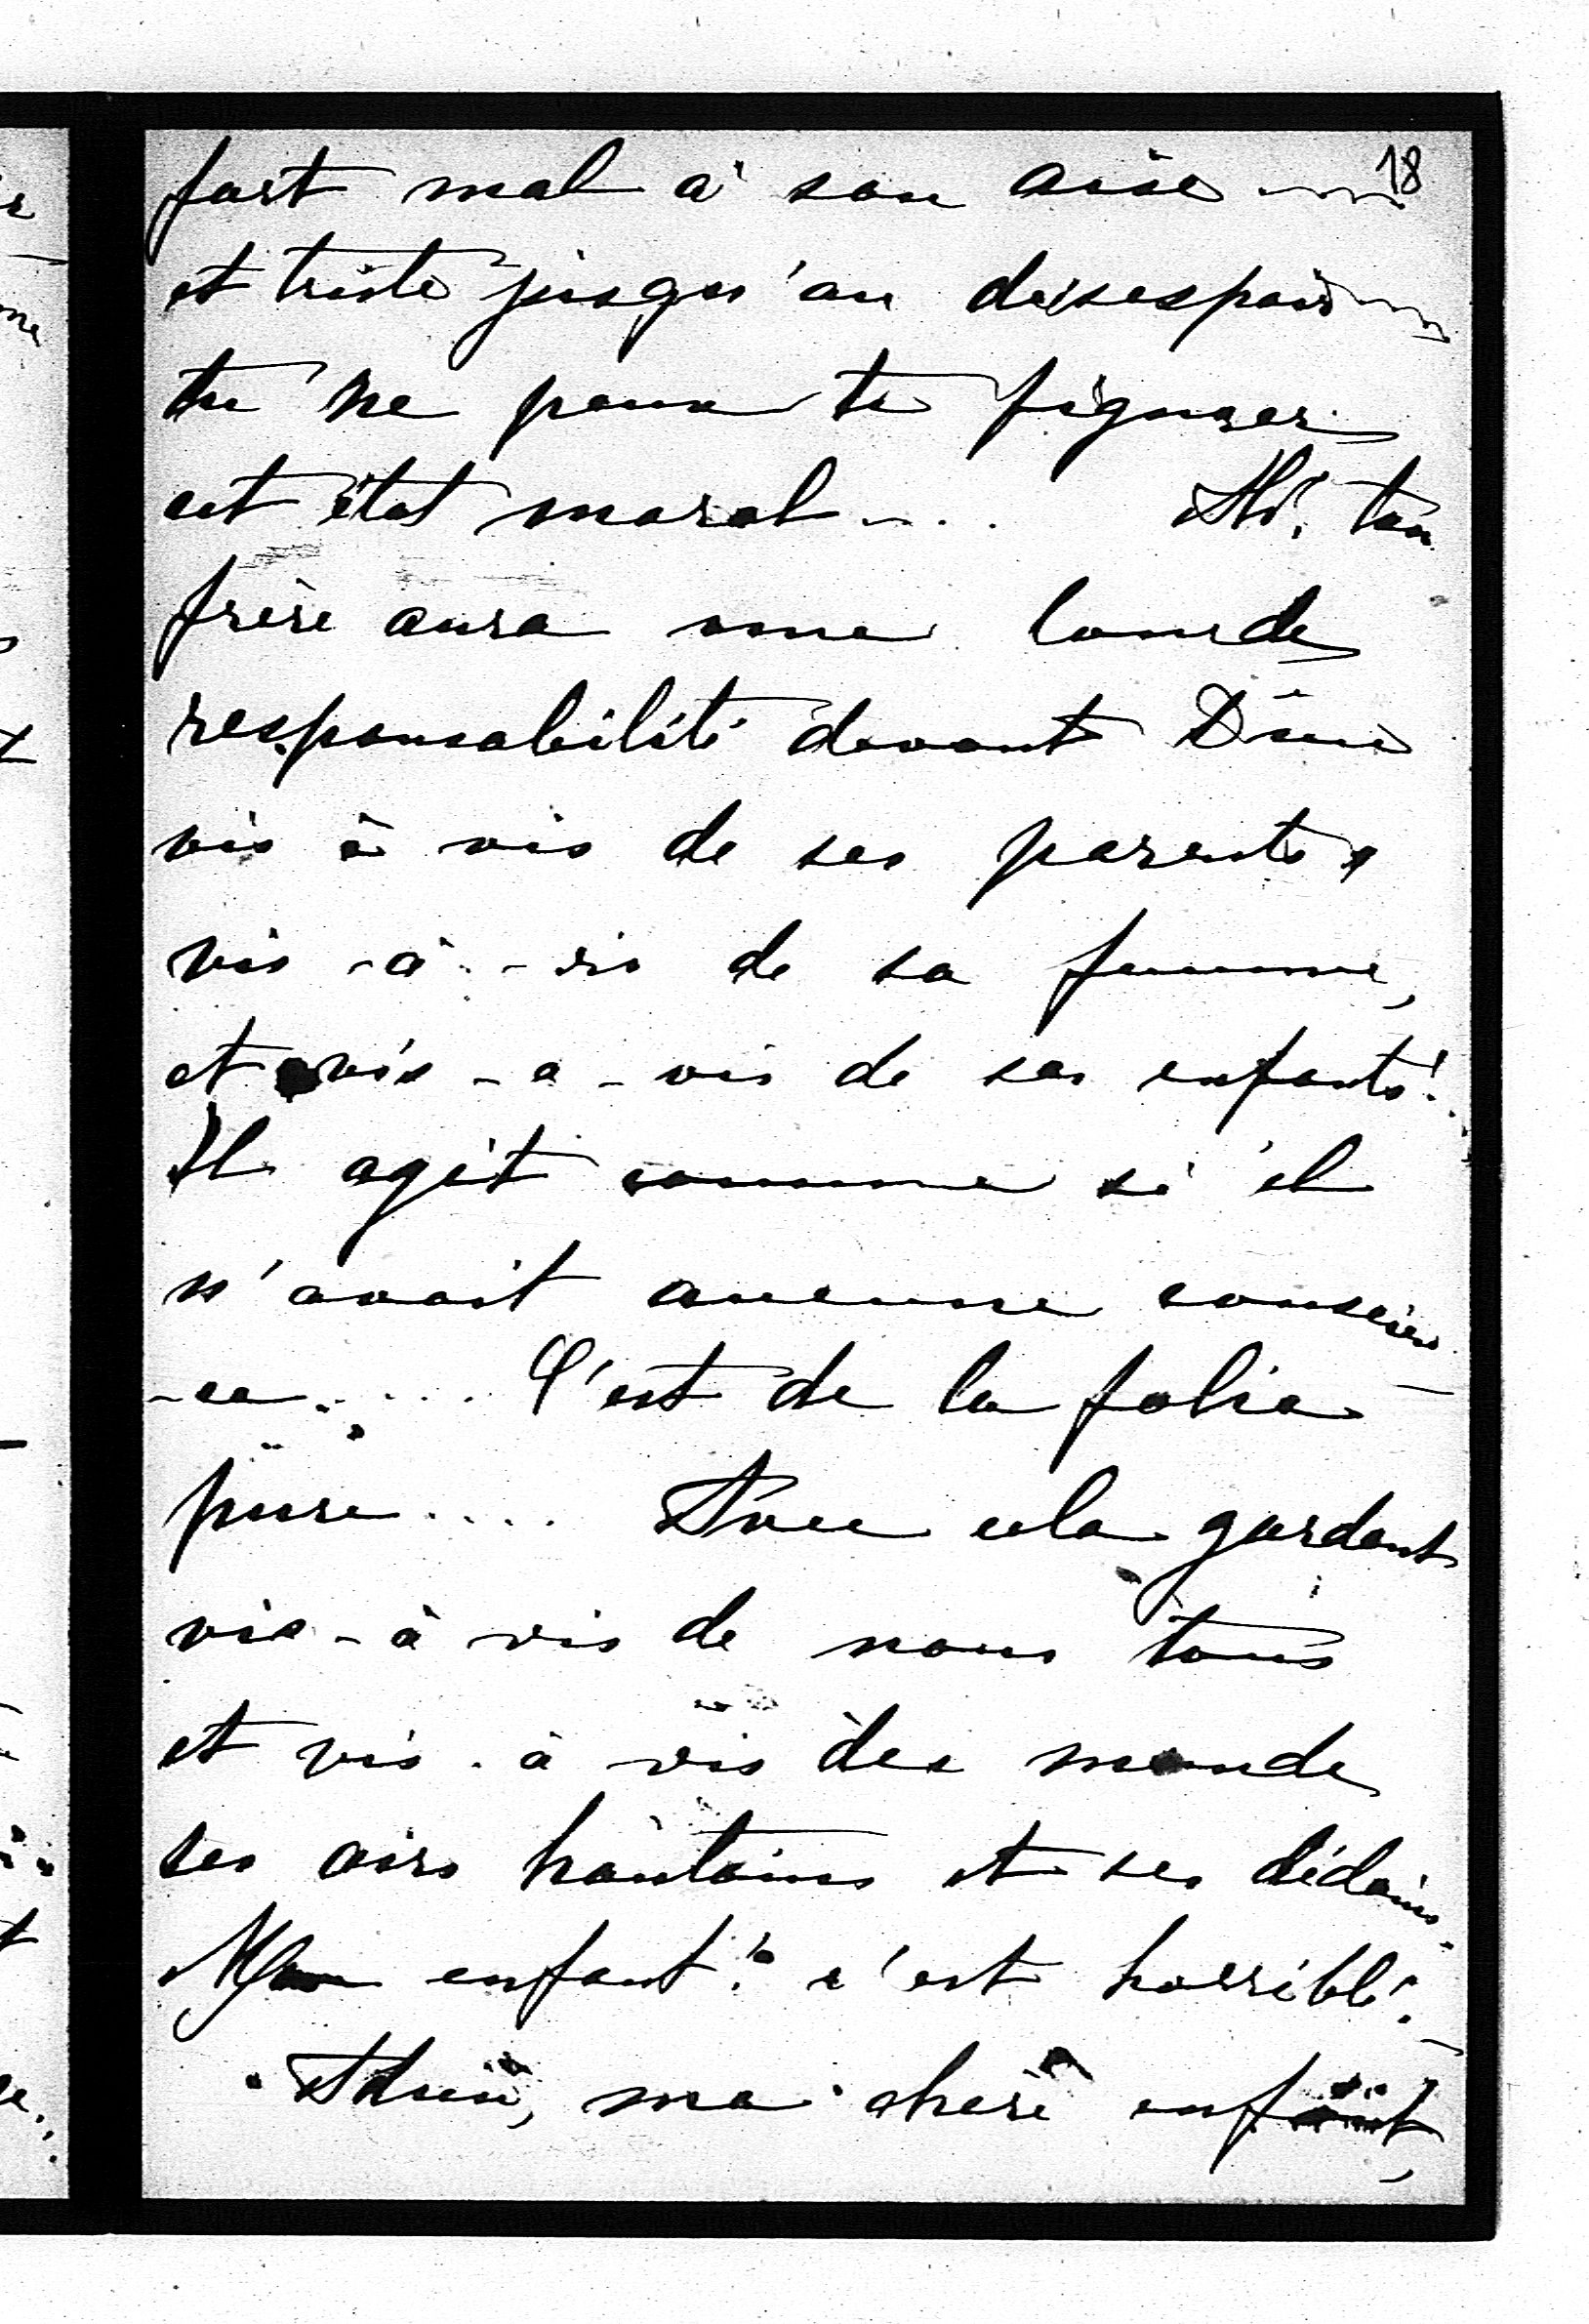 18
fort mal à son aise
et triste jusqu'au desespoir
tu ne peux te figurer
cet état moral....   Ah! ton
frère aura une lourde
responsabilité devant Dieu
vis à vis de ses parents,
vis-à-vis de sa femme,
et vis-a-vis de ses enfants!
Il agit comme si il
n'avait aucune conscien
-ce..... C'est de la folie
pure.... Avec cela gardant
vis-à vis de nous tous
et vis-à vis du monde
ses airs hautains et ses dédains.
Mon enfant! c'est horrible!
Adieu, ma chère enfant,